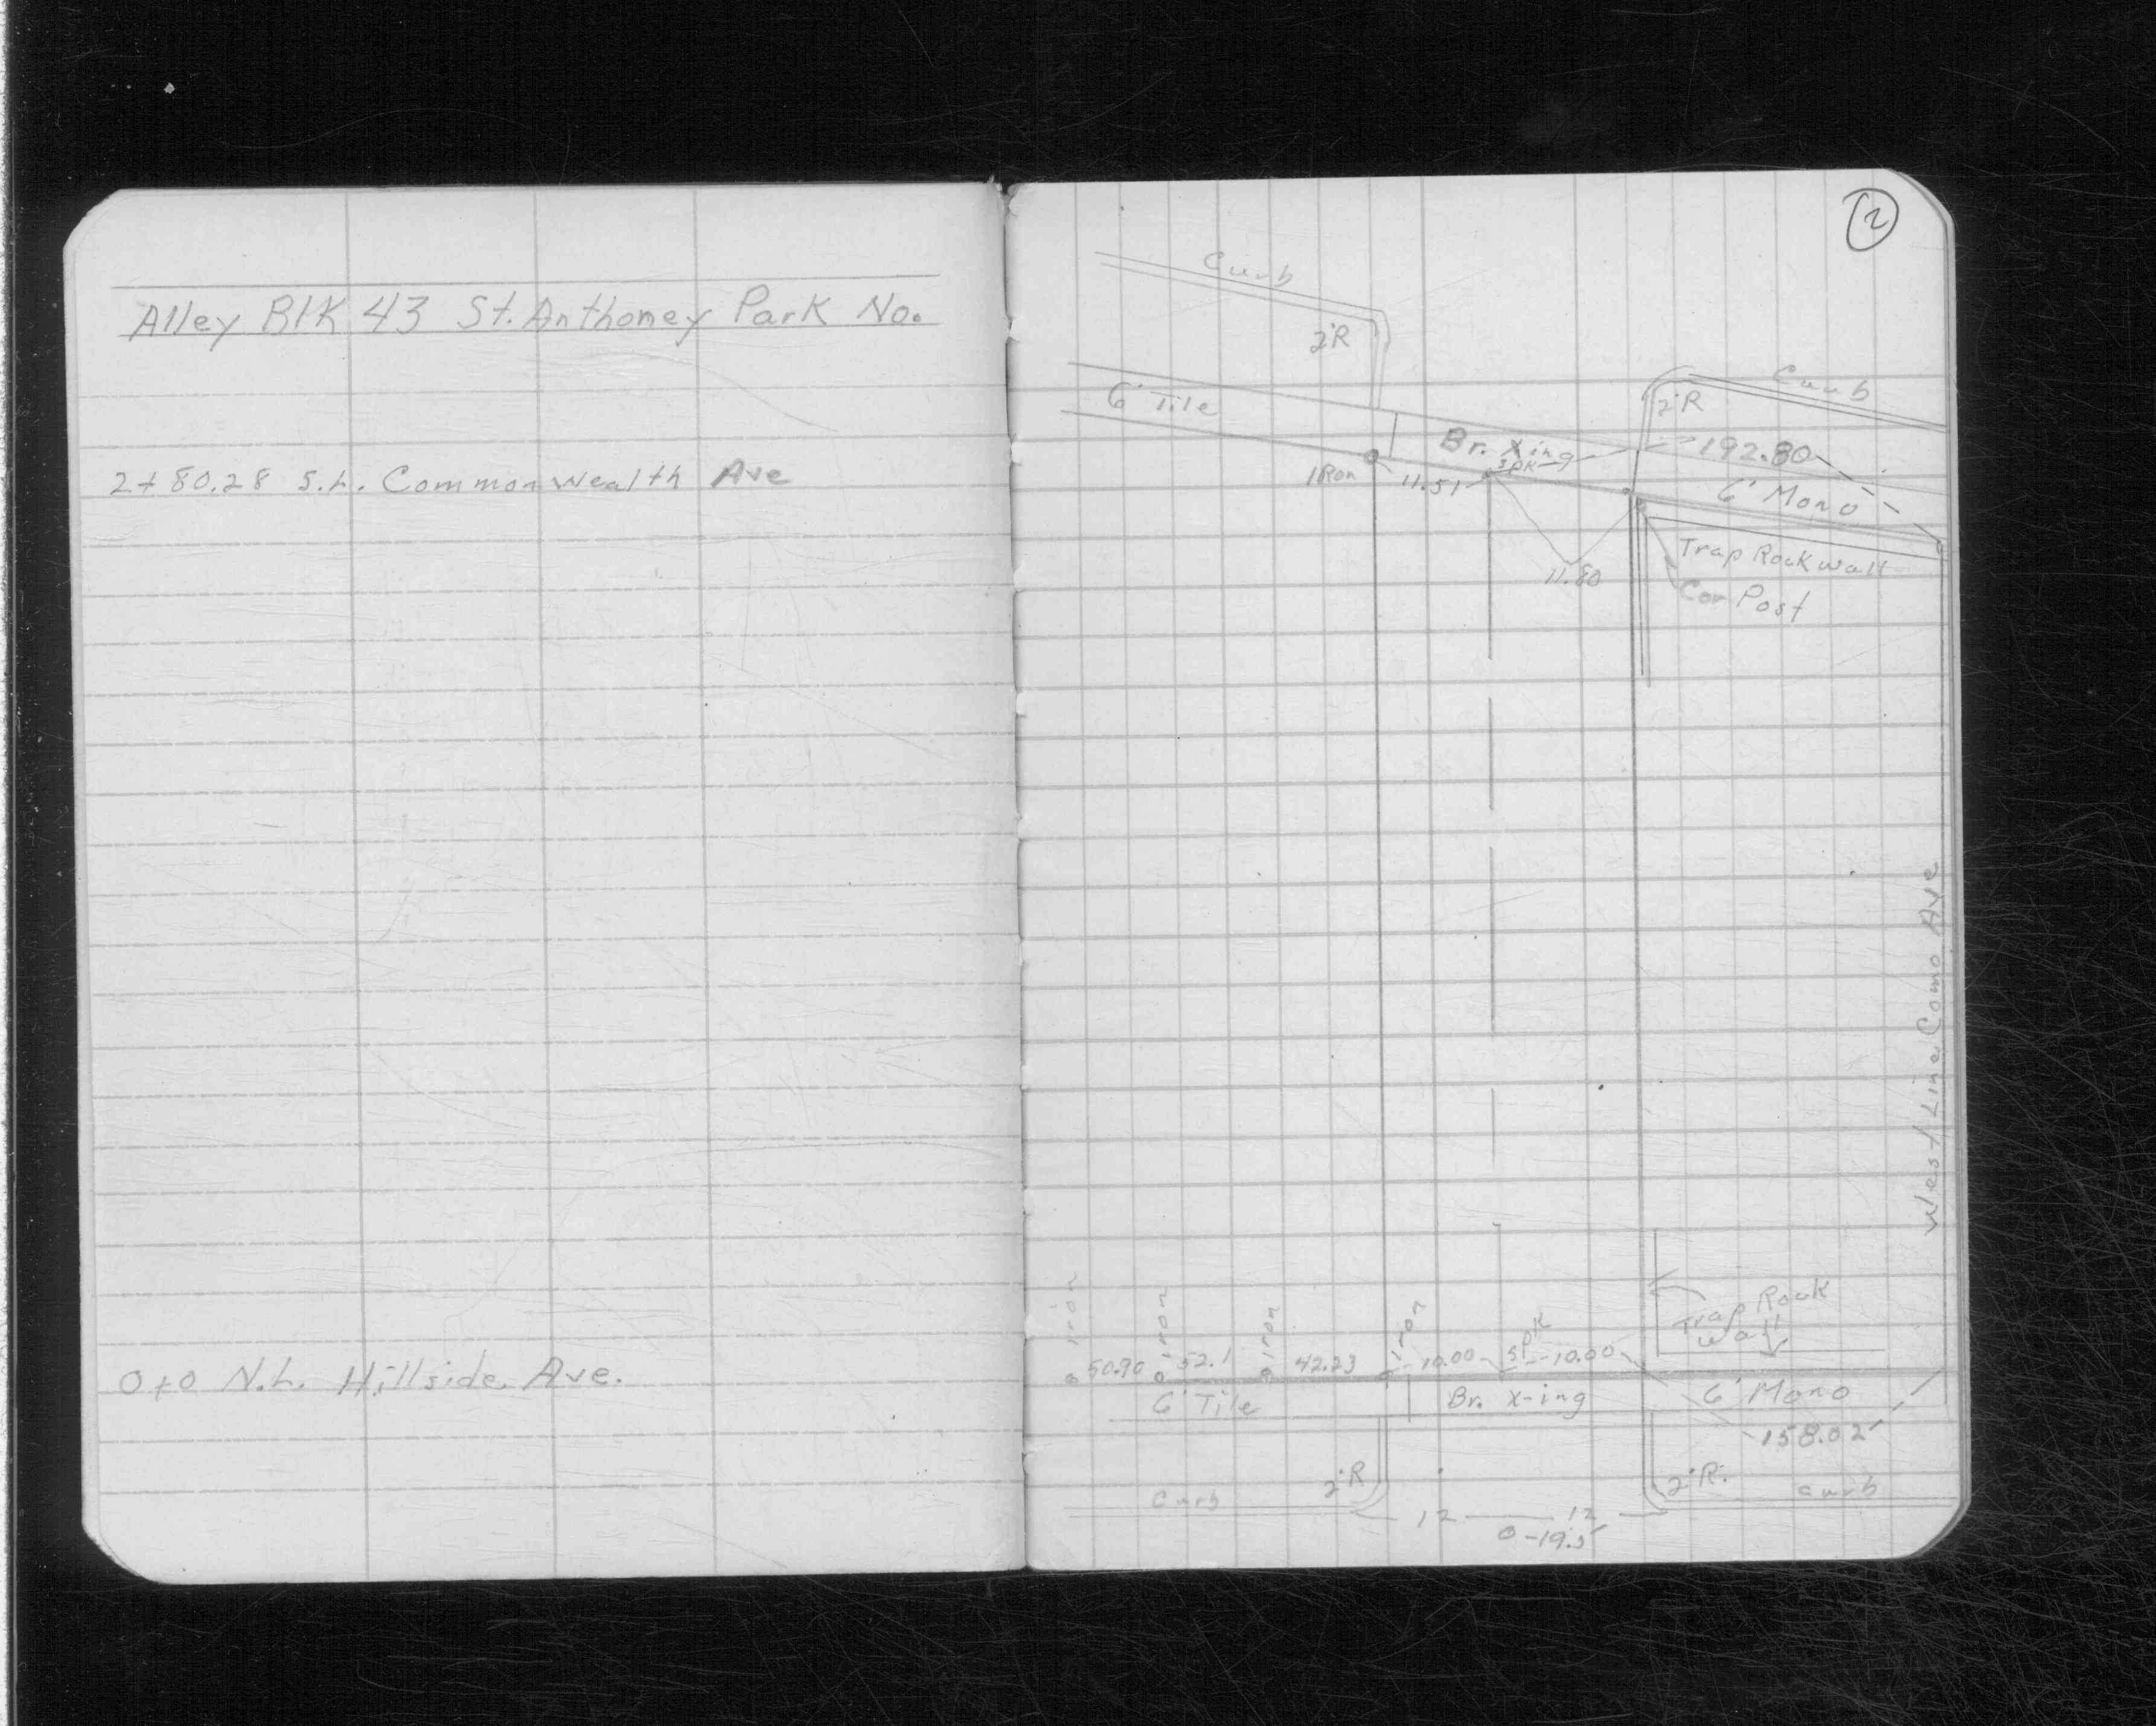 Alley Blk 43 St. Anthoney Park No.
2+80.28 S.L. Common Wealth Ave
0+0 N.L. Hillside Ave.
2
Curb
2'R
Curb
6' Tile
2'R
Br. Xing
192.80
SPK
1Ron
11.51
6' Mono
Trap Rock Wall
11.80
Cor Post
West Line Como Ave
Trap Rock
Wall
0 Iron
0 Iron
0 Iron
Iron
SPK
50.90
52.1
42.23
10.00
10.00
6' Tile
Br. X-ing
6' Mono
158.02
2'R
2'R.
Curb
curb
12
12
0-19.5